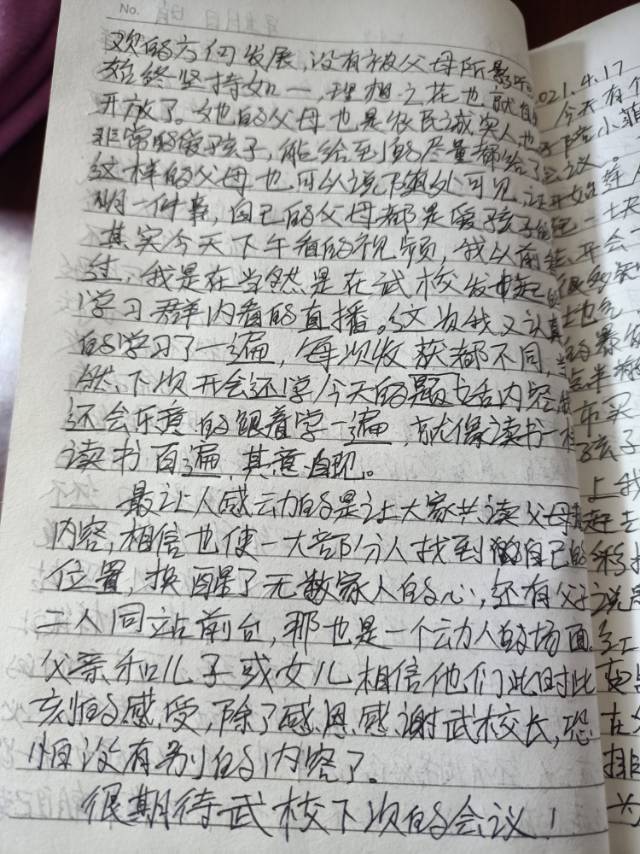 No.
欢的方向发展,没有被父母所影响
始终坚持如一,理想之花也就自
开放了。她的父母也是农民诚实人也
非常的爱孩子,能给到的尽量都给了
这样的父母也可以说随处可见,证
明一件事,自己的父母都是爱孩子的
其实今天下午看的视频,我以前
过,我是在当然是在武校发起的
学习群内看的直播。这次我又认真
的学习了一遍,每次收获都不同,当
然,下次开会还学今天的题女士内容
还会乐意的跟着学一遍,就像读书一
读书百遍,其意自现。
最让人感动的是让大家共读父母
内容,相信也使一大部分人找到自己的
位置,换醒了无数家人的心,还有父子
二人同站前台,那也是一个动人的场面
父亲和儿子或女儿相信他们此时此
刻的感受,除了感恩感谢武校长,恐
怕没有别的内容了。
很期待武校下次的会议!
021.4.17
今天有个
陪小菲
会议。
开始连人
一丈夫
开会一
很匆匆
土地
的暴
点半
布买
孩子
上我
起去
移
说是
红工
更
在
排
为